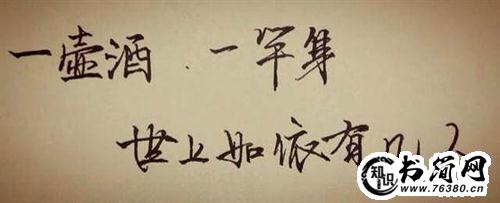 一壶酒、一竿
世上如依有几
知识 书简网
www.76380.cn